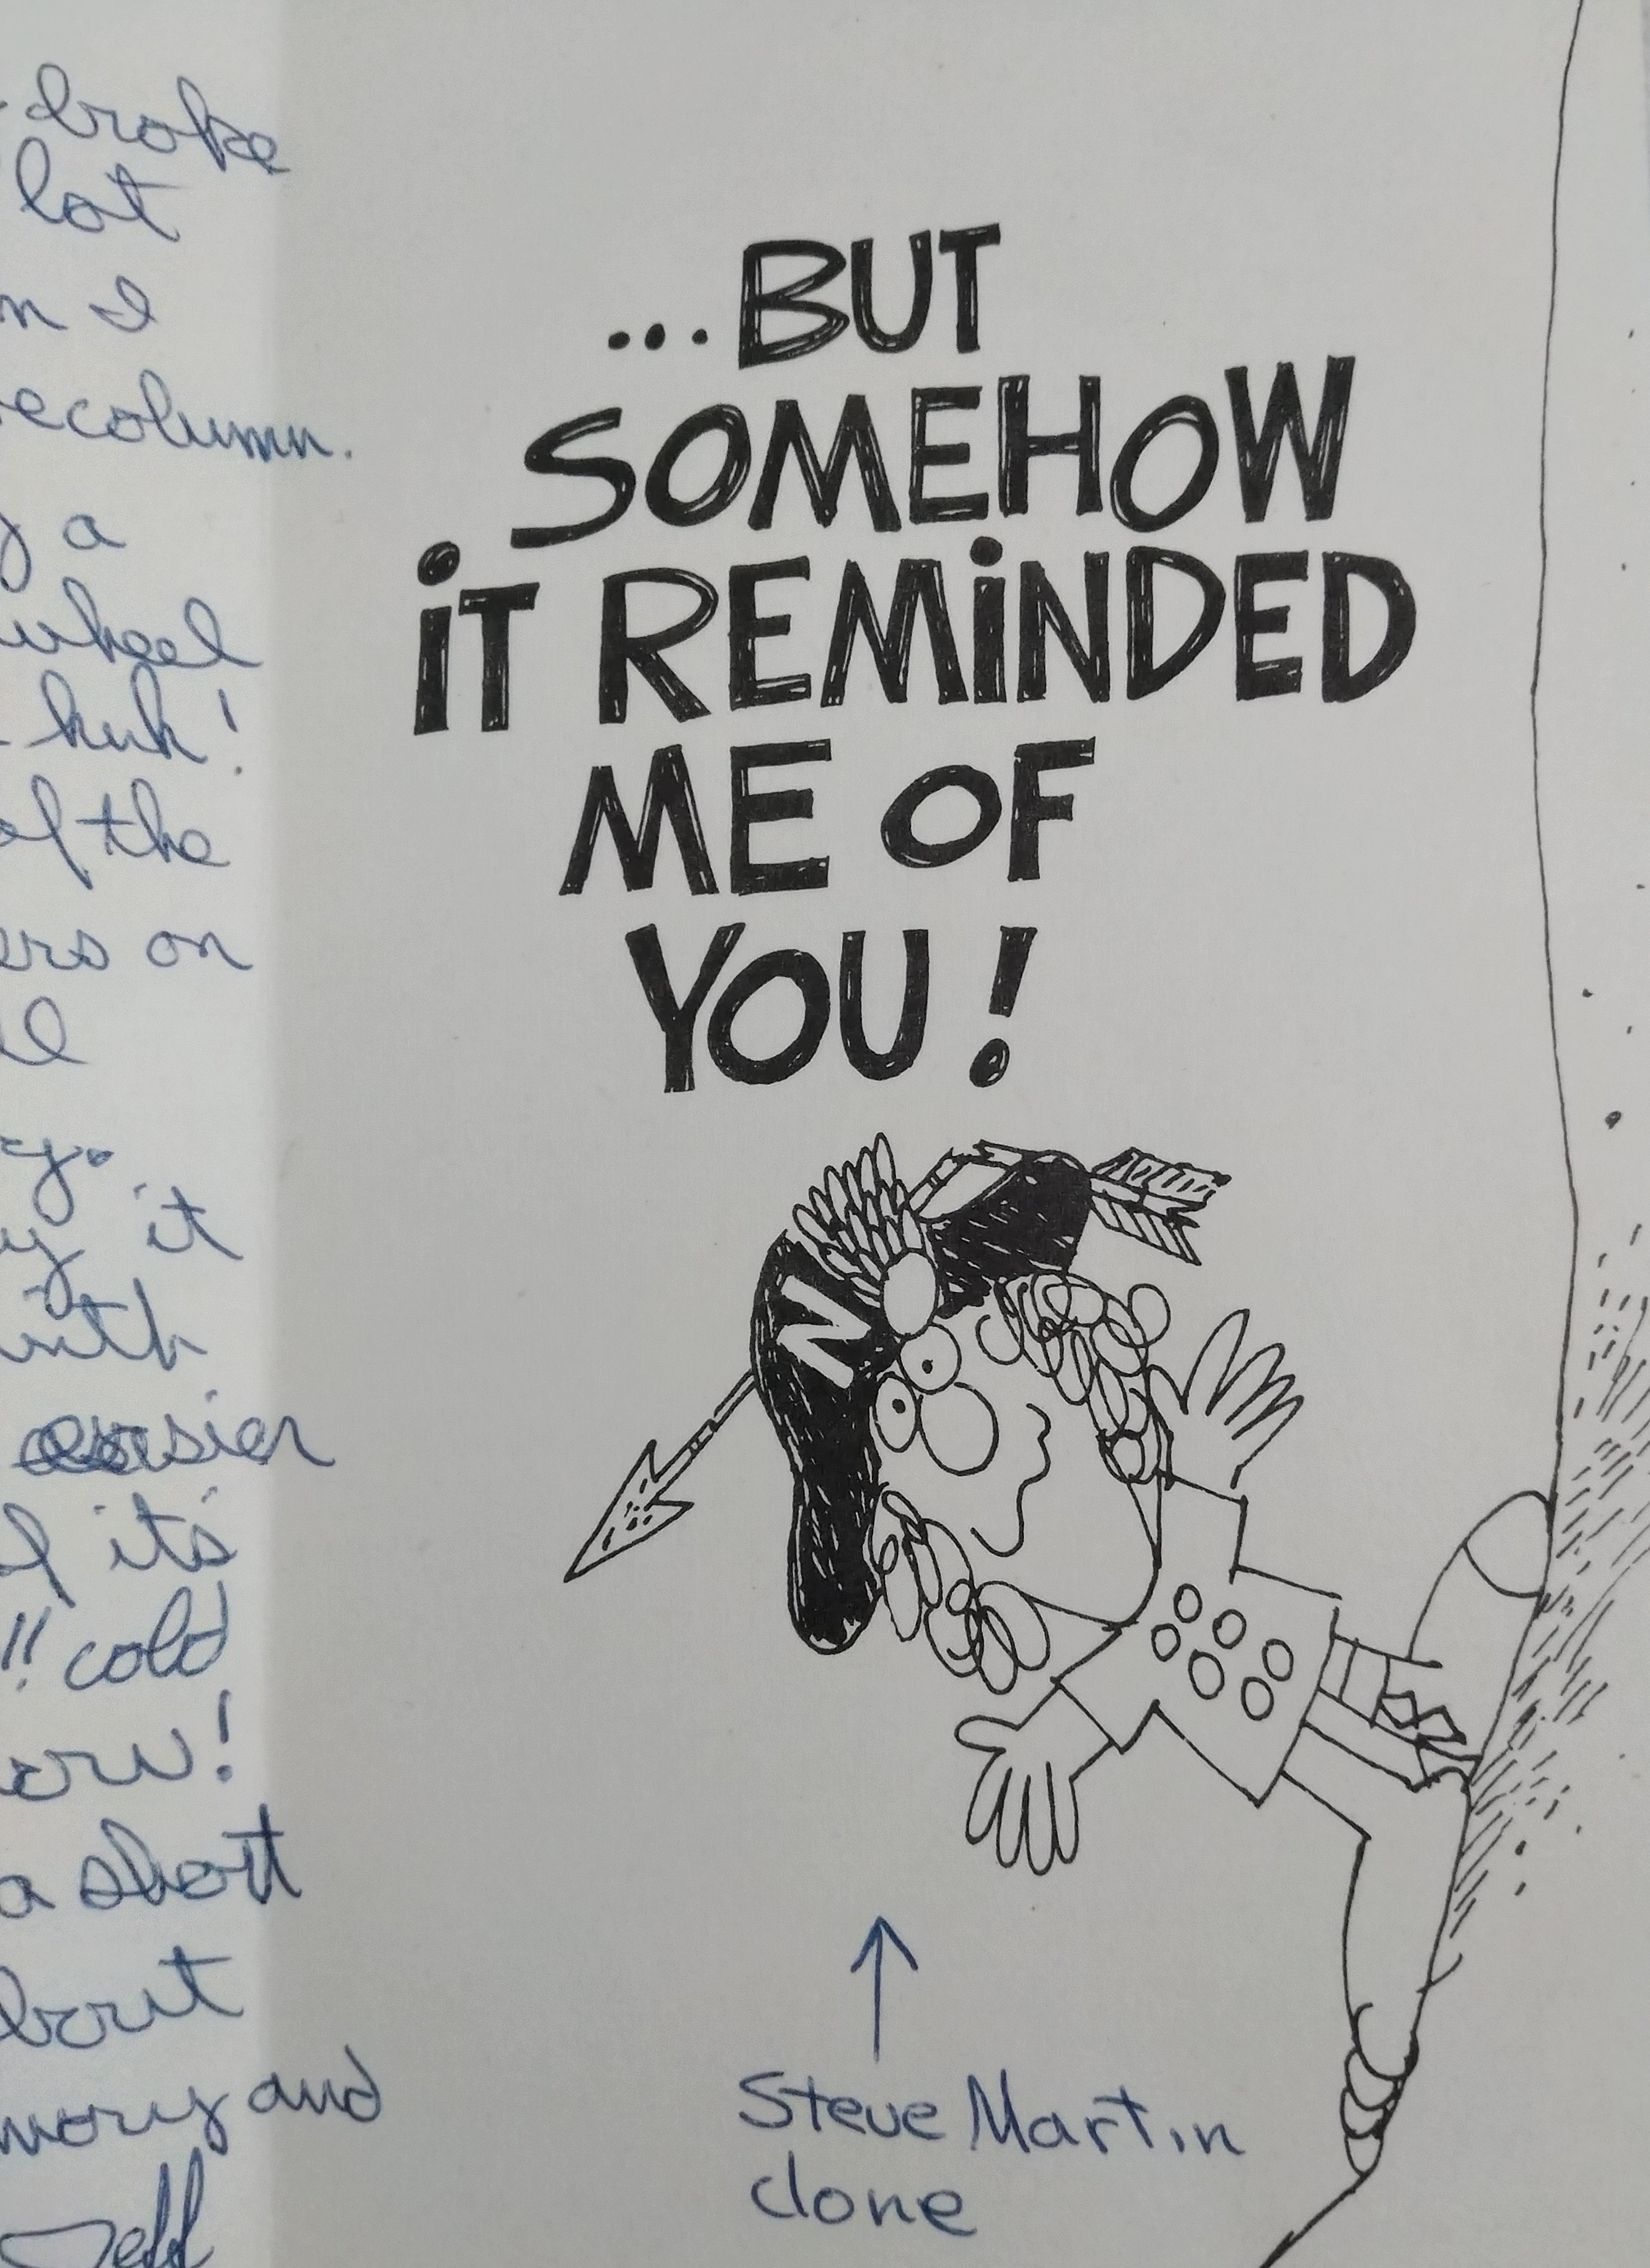 broke
lot
I
ecolumn.
a
wheel
huh!
of the
ers on
y.
it
with
easier
it's
!! cold
orw!
a short
bout
mory and
Jeff
...BUT
SOMEHOW
iT REMiNDED
ME OF
YOU!
N
Steve Martin
clone